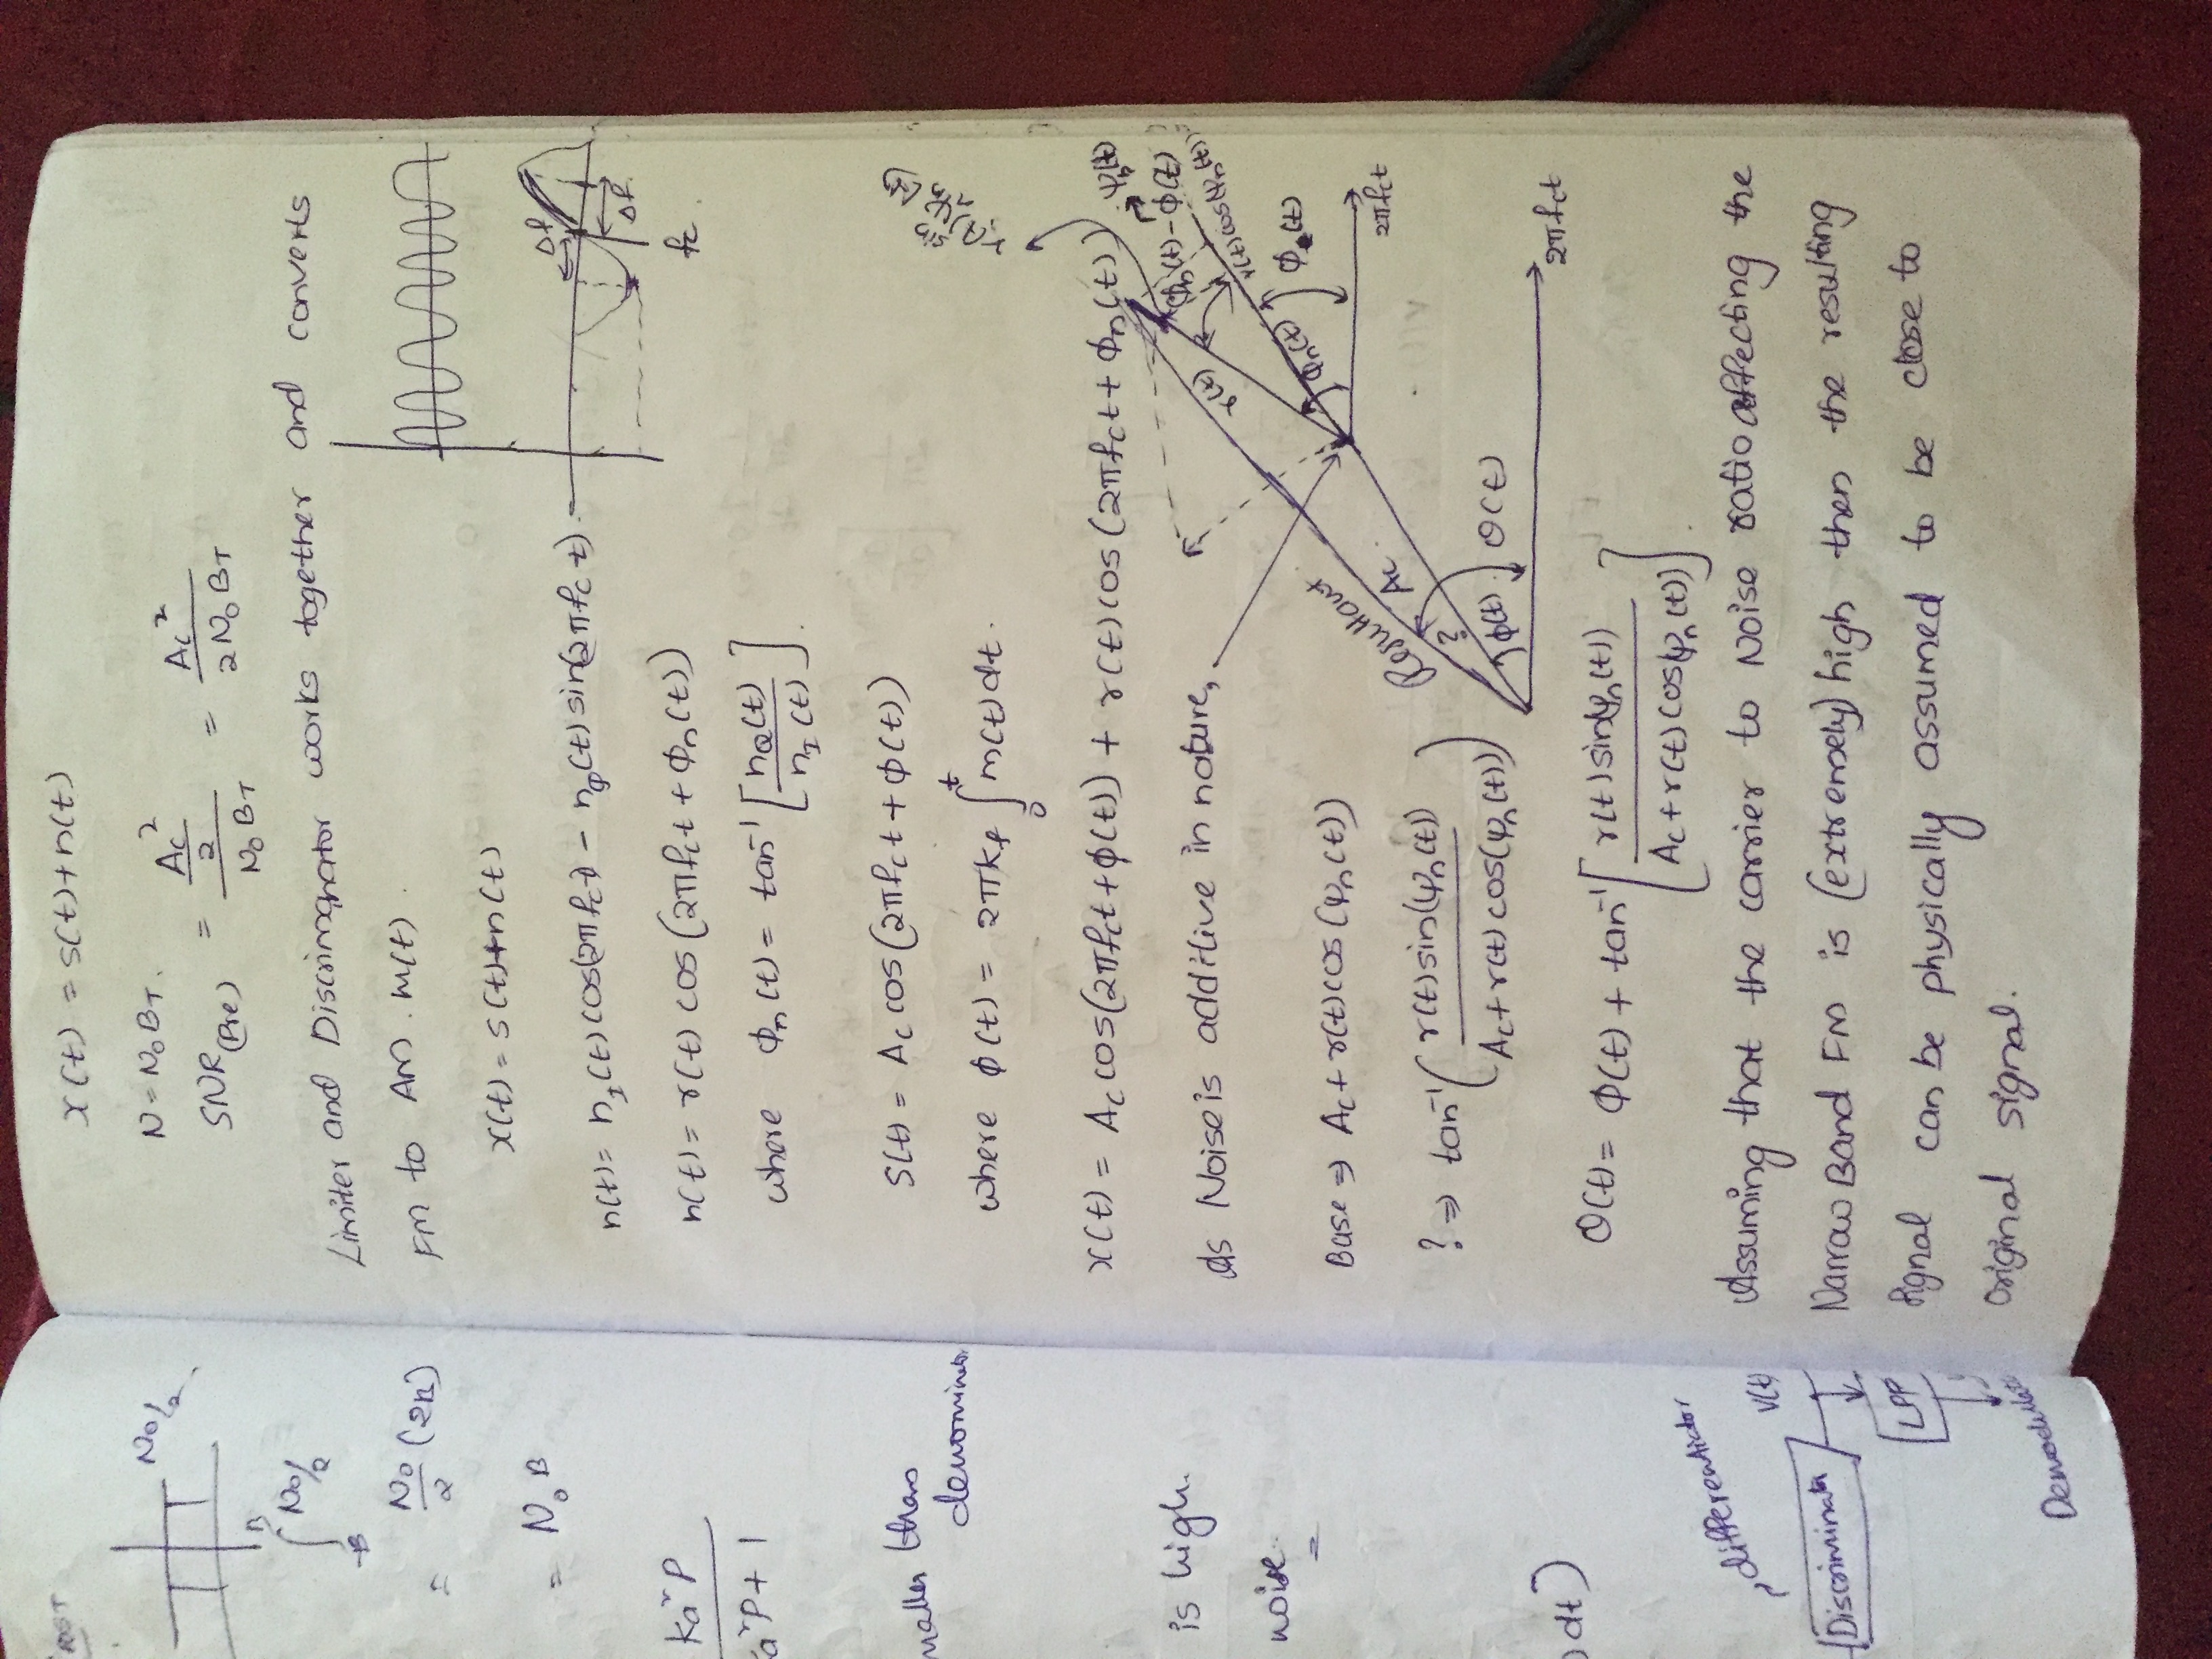 POST
N0/2
B
∫ N0/2
-B
= N0/2 (2B)
= N0 B
Ka²P
a²P + 1
maller than
denominator
is high.
noise.
dt)
differentiator
V(t)
Discriminator
LPF
Demodulate
x(t) = s(t)+n(t)
N = N0 BT.
SNR(Pre) = (Ac²/2)/(N0 BT) = Ac²/(2N0 BT)
Limiter and Discriminator works together and converts
FM to AM. m(t).
x(t) = s(t)+n(t)
n(t) = nI(t) cos(2πfct) - nQ(t) sin(2πfct).
Δf
Δf.
fc.
n(t) = r(t) cos(2πfct + Φn(t))
where Φn(t) = tan⁻¹ [nQ(t)/nI(t)].
S(t) = Ac cos(2πfct + ϕ(t))
where ϕ(t) = 2πkf ∫₀ᵗ m(t)dt.
x(t) = Ac cos(2πfct + ϕ(t)) + r(t) cos(2πfct + Φn(t))
r(t) sin(ψn(t))
ψn(t)
Φn(t) - Φ(t)
r(t)
r(t)cos(ψn(t))
As Noise is additive in nature,
Φn(t)
Φ(t)
2πfct
Base ⇒ Ac + r(t)cos(ψn(t))
Resultant
Ac.
? ⇒ tan⁻¹( r(t)sin(ψn(t)) / Ac+r(t)cos(ψn(t)) )
?
ϕ(t)
θ(t)
2πfct
θ(t) = Φ(t) + tan⁻¹[ r(t)sin(ψn(t)) / Ac+r(t)cos(ψn(t)) ].
Assuming that the carrier to Noise ratio affecting the
Narrow Band FM is (extremely) high then the resulting
signal can be physically assumed to be close to
original signal.